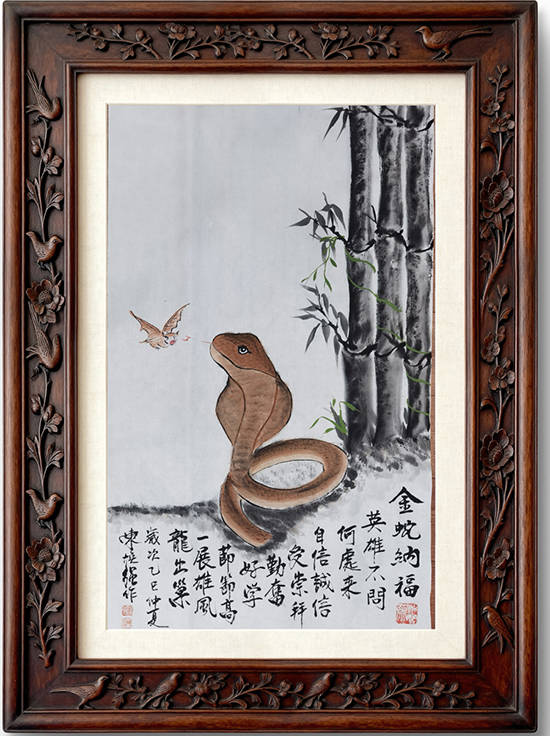 金蛇納福
英雄不問
何處来
自信誠信
受崇拜
勤奮
好学
節節高
一展雄風
龍出巢
歲次乙巳仲夏
陳恒強作